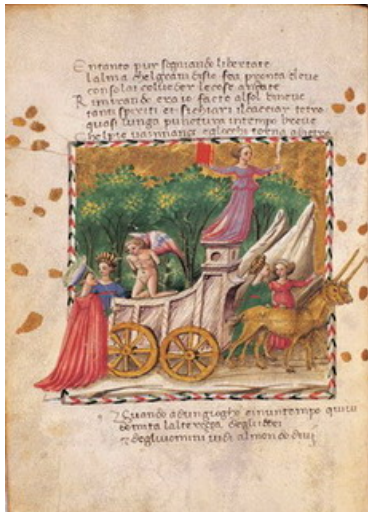 Entanto pur sognando libertate
lalma chel gram disio fea pronta e leve
consolai col veder le cose andate
Rimirando era io facto al sol di neve
tanti spirti et si chiari in carcer tetro
quasi lunga pictura in tempo breve
chel pie va innanzi e gliocchi torna a dietro
Quando ad un giogho et in un tempo quivi
domita lalterezza degli dei
et degli uomini vidi al mondo divi